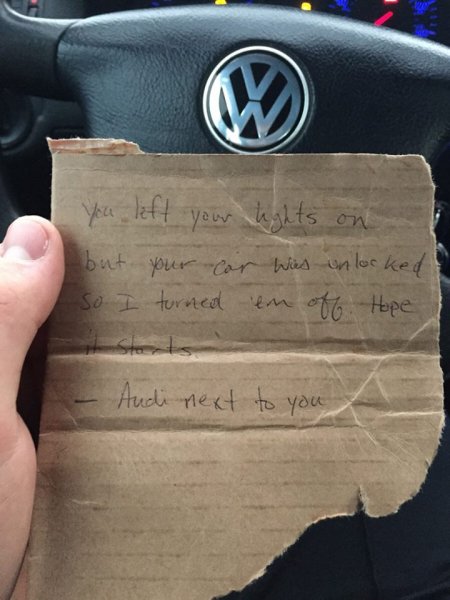 You left your lights on
but your car was unlocked
so I turned 'em off. Hope
it starts.
— Audi next to you